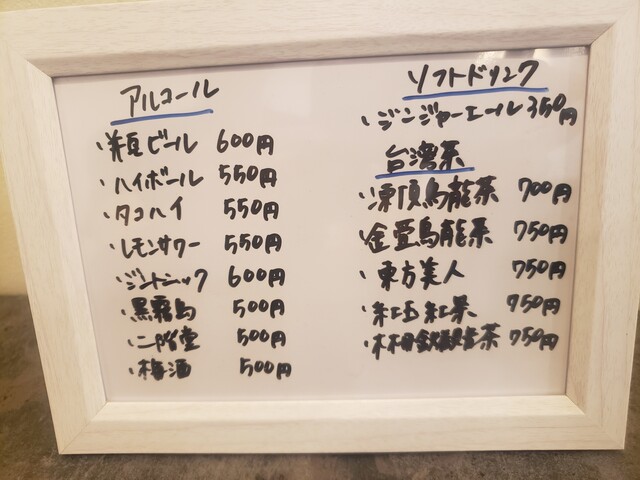 アルコール
・瓶ビール 600円
・ハイボール 550円
・タコハイ 550円
・レモンサワー 550円
・ジントニック 600円
・黒霧島 500円
・二階堂 500円
・梅酒 500円
ソフトドリンク
・ジンジャーエール 350円
台湾茶
・凍頂烏龍茶 700円
・金萱烏龍茶 750円
・東方美人 750円
・紅玉紅茶 750円
茶 750円